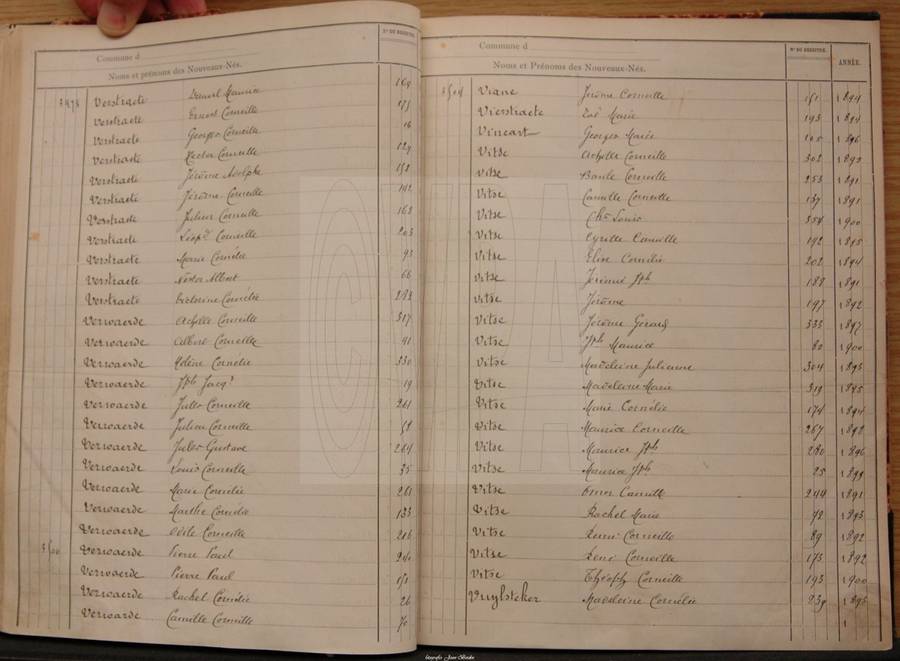 Commune d
N° DU REGISTRE.
Noms et prénoms des Nouveaux-Nés.
Verstraete Daniel Maurice 164
Verstraete Ernest Corneille 175
Verstraete Georges Corneille 16
Verstraete Hector Corneille 129
Verstraete Jérôme Adolphe 152
Verstraete Jérôme Corneille 142
Verstraete Julien Corneille 163
Verstraete Léopd Corneille 203
Verstraete Marie Cornélie 93
Verstraete Nestor Albert 66
Verstraete Victorine Cornélie 283
Verwaerde Achille Corneille 317
Verwaerde Albert Corneille 91
Verwaerde Hélène Cornélie 330
Verwaerde Jph Jacqs 19
Verwaerde Jules Corneille 261
Verwaerde Julien Corneille
Verwaerde Jules Gustave 264
Verwaerde Louis Corneille 35
Verwaerde Marie Cornélie 261
Verwaerde Marthe Cornélie 133
Verwaerde Odile Corneille 216
3500 Verwaerde Pierre Paul 240
Verwaerde Pierre Paul 151
Verwaerde Rachel Cornélie 26
Verwaerde Camille Corneille 70
Commune d
N° DU REGISTRE.
ANNÉE.
Noms et Prénoms des Nouveaux-Nés.
Viane Jérôme Corneille 151 1894
Vierstraete Zoé Marie 193 1894
Vincart Georges Marie 105 1896
Vitse Achille Corneille 302 1892
Vitse Corneille 253 1891
Vitse Camille Corneille 137 1891
Vitse Chs Louis 354 1900
Vitse Cyrille Camille 192 1895
Vitse Elise Cornélie 202 1894
Vitse Jérémie Jph 188 1891
Vitse Jérôme 197 1892
Vitse Jérôme Gérard 333 1897
Vitse Jph Maurice 80 1900
Vitse Madeleine Julienne 304 1895
Vitse Madeleine Marie 319 1895
Vitse Marie Cornélie 174 1894
Vitse Maurice Corneille 267 1892
Vitse Maurice Jph 280 1896
Vitse Maurice Jph 25 1899
Vitse Omer Camille 244 1891
Vitse Rachel Marie 72 1893
Vitse Remi Corneille 89 1892
Vitse René Corneille 173 1892
Vitse Théoph Corneille 193 1900
Vuylsteker Madeleine Cornélie 239 1895
CMA